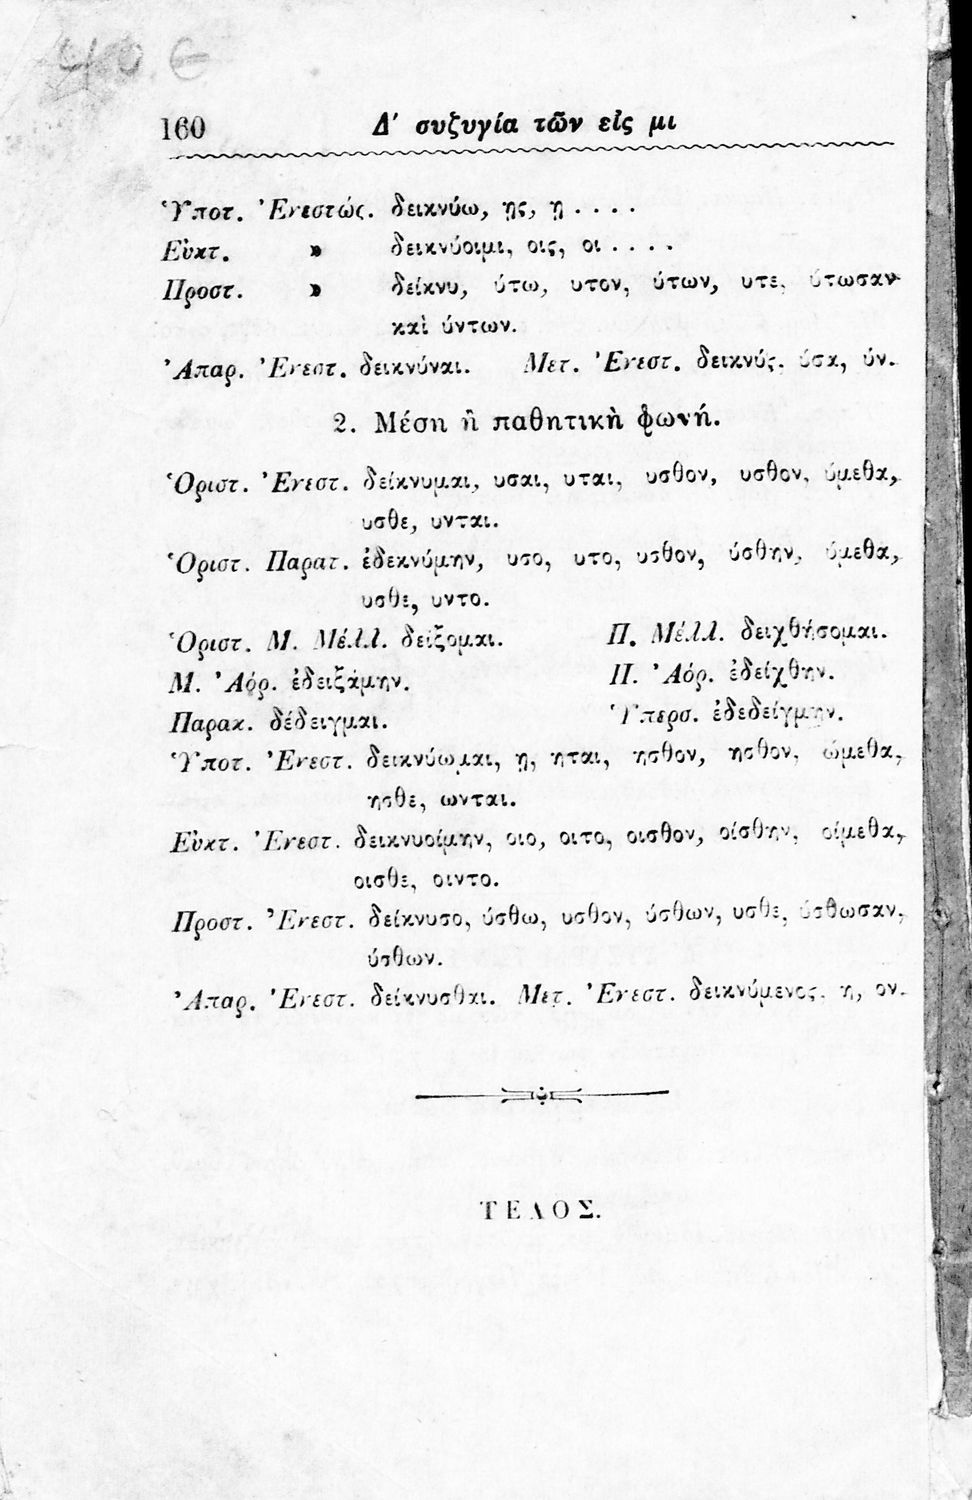 160 Δ΄ συζυγία τῶν εἰς μι
Ὑποτ. Ἐνεστώς. δεικνύω, ῃς, ῃ . . . .
Εὐκτ. » δεικνύοιμι, οις, οι . . . .
Προστ. » δείκνυ, ύτω, υτον, ύτων, υτε, ύτωσαν
καὶ ύντων.
Ἀπαρ. Ἐνεστ. δεικνύναι. Μετ. Ἐνεστ. δεικνύς, ύσα, ύν.
2. Μέση ἢ παθητικὴ φωνή.
Ὁριστ. Ἐνεστ. δείκνυμαι, υσαι, υται, υσθον, υσθον, ύμεθα,
υσθε, υνται.
Ὁριστ. Παρατ. ἐδεκνύμην, υσο, υτο, υσθον, ύσθην, ύμεθα,
υσθε, υντο.
Ὁριστ. Μ. Μέλλ. δείξομαι. Π. Μέλλ. δειχθήσομαι.
Μ. Ἀόρ. ἐδειξάμην. Π. Ἀόρ. ἐδείχθην.
Παρακ. δέδειγμαι. Ὑπερσ. ἐδεδείγμην.
Ὑποτ. Ἐνεστ. δεικνύωμαι, ῃ, ηται, ησθον, ησθον, ώμεθα,
ησθε, ωνται.
Εὐκτ. Ἐνεστ. δεικνυοίμην, οιο, οιτο, οισθον, οίσθην, οίμεθα,
οισθε, οιντο.
Προστ. Ἐνεστ. δείκνυσο, ύσθω, υσθον, ύσθων, υσθε, ύσθωσαν,
ύσθων.
Ἀπαρ. Ἐνεστ. δείκνυσθαι. Μετ. Ἐνεστ. δεικνύμενος, η, ον.
ΤΕΛΟΣ.